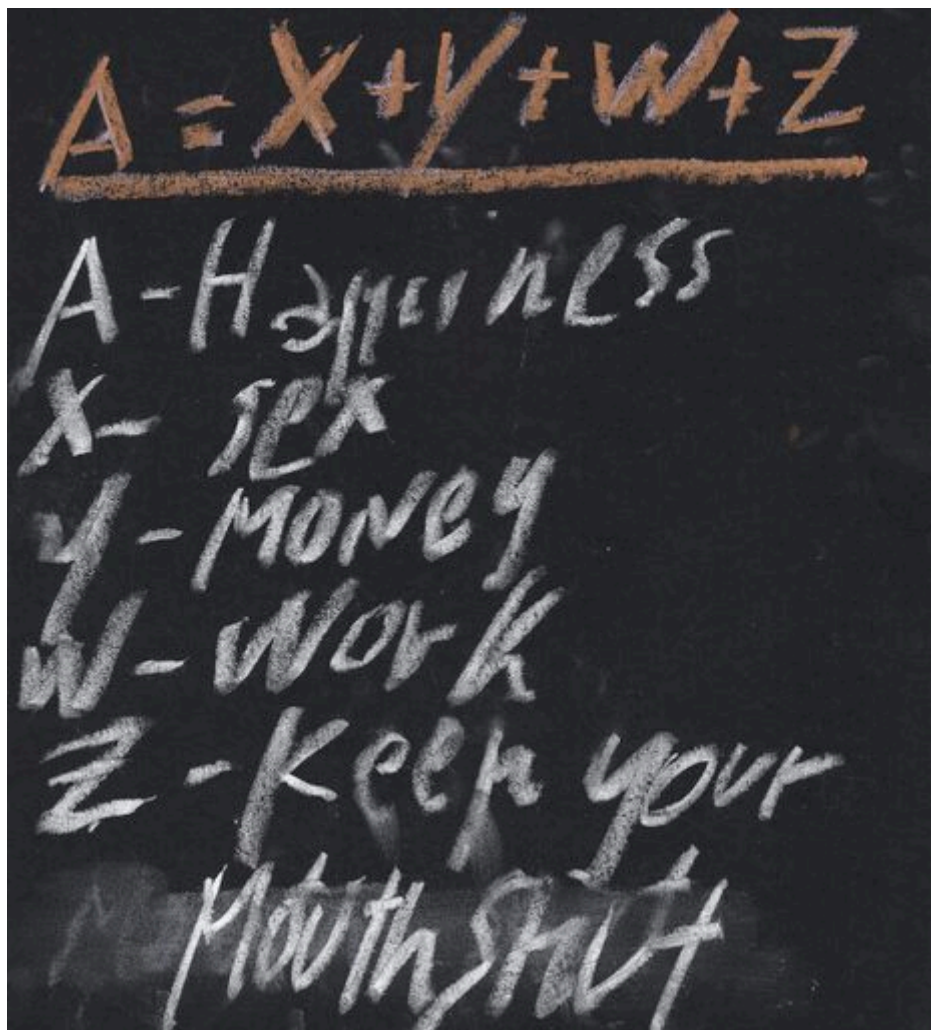 A = X + Y + W + Z
A - Happiness
X - sex
Y - Money
W - Work
Z - Keep your
Mouth Shut